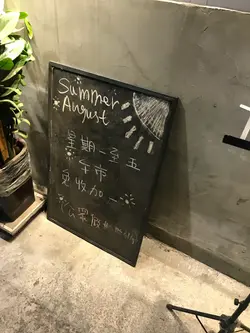 Summer
August
星期一至五
午市
免收加一